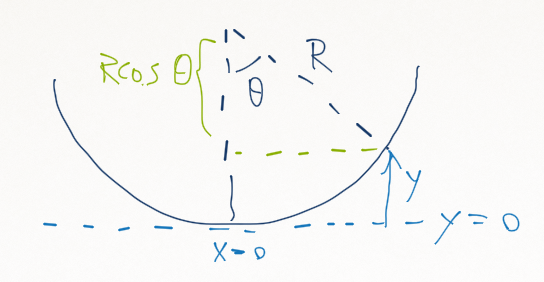 R
Rcos θ
θ
y
y = 0
x = 0